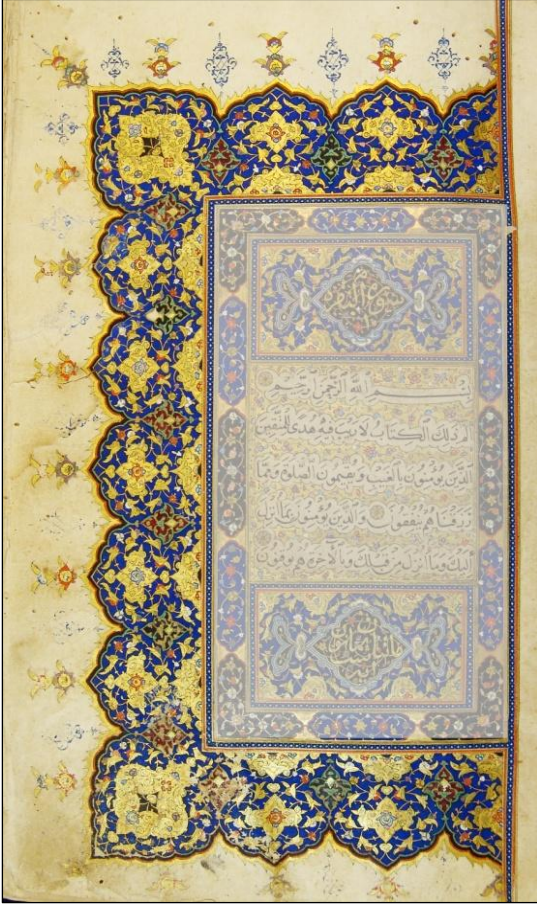 سورة البقرة
بسم الله الرحمن الرحيم
الم ذلك الكتاب لا ريب فيه هدى للمتقين
الذين يؤمنون بالغيب ويقيمون الصلوة ومما
رزقناهم ينفقون والذين يؤمنون بما انزل
اليك وما انزل من قبلك وبالآخرة هم يوقنون